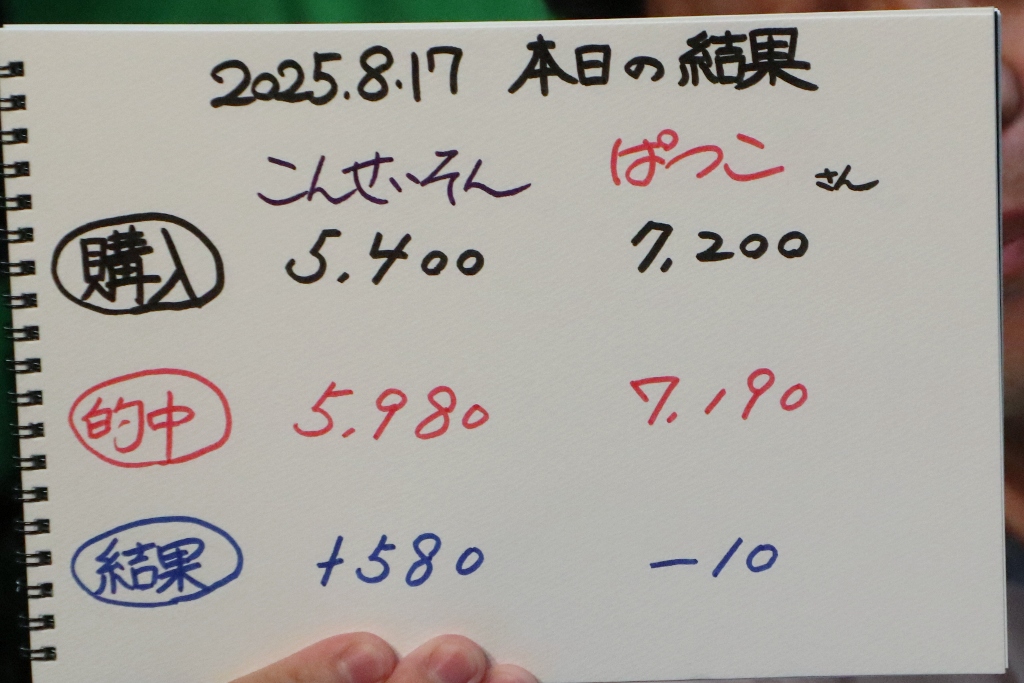 2025.8.17 本日の結果
こんせいそん ぱつこ さん
購入 5.400 7.200
的中 5.980 7.190
結果 +580 -10